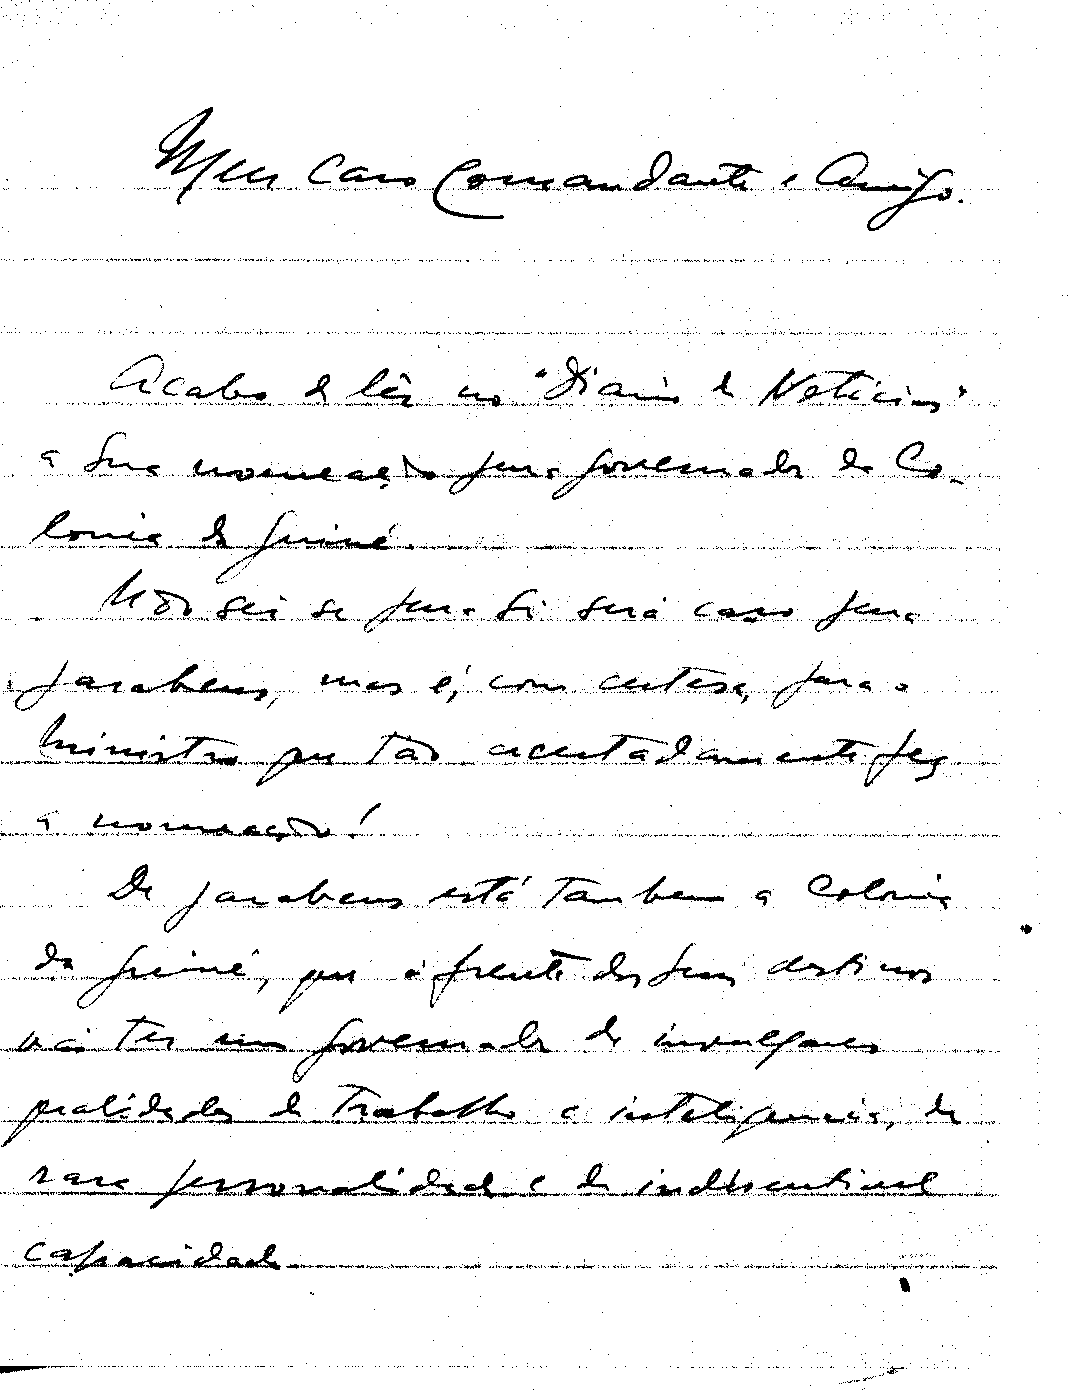 Meu caro Comandante e Amigo.
Acabo de lêr no "Diario de Noticias"
a sua nomeação para governador da Co-
lonia da Guiné.
Não sei se para si será caso para
parabens, mas é, com certesa, para o
Ministro que tão acertadamente fez
a nomeação!
De parabens está tambem a Colonia
da Guiné, que á frente dos seus destinos
vai ter um governador de invulgares
qualidades de trabalho e inteligencia, de
rara personalidade e de indiscutivel
capacidade.